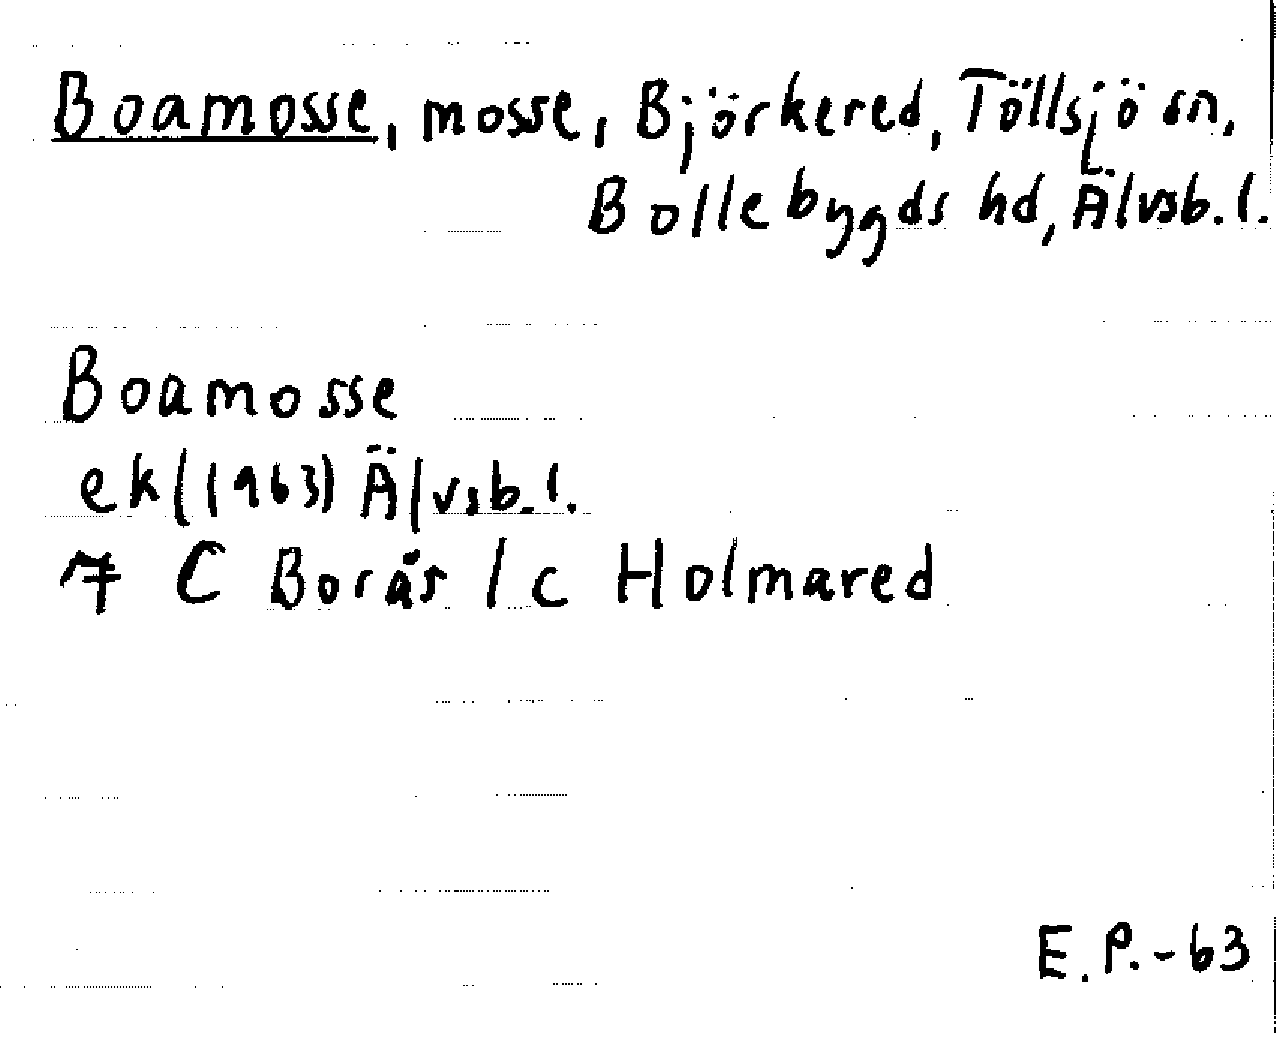 Boamosse, mosse, Björkered, Töllsjö sn,
Bollebygds hd, Älvsb. l.
Boamosse
ek((1963) Älvsb. l.
7 C Borås / c Holmared
E.P.-63